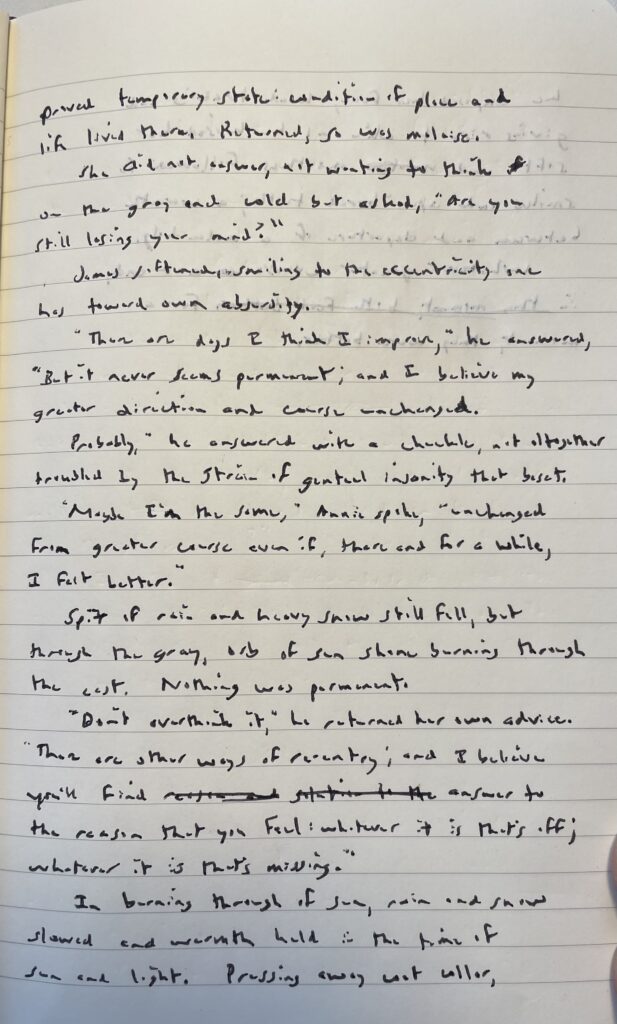 proved temporary state: condition of place and
life lived there. Returned, so was malaise.
She did not answer, not wanting to think
on the gray and cold but asked, "Are you
still losing your mind?"
James softened, smiling to the eccentricity one
has toward own absurdity.
"There are days I think I improve," he answered,
"But it never seems permanent; and I believe my
greater direction and course unchanged.
Probably," he answered with a chuckle, not altogether
troubled by the strain of genteel insanity that beset.
"Maybe I'm the same," Annie spoke, "unchanged
from greater course even if, there and for a while,
I felt better."
Spit of rain and heavy snow still fell, but
through the gray, orb of sun shone burning through
the east. Nothing was permanent.
"Don't overthink it," he returned her own advice.
"There are other ways of reentry; and I believe
you'll find answer to
the reason that you feel: whatever it is that's off;
whatever it is that's missing."
In burning through of sun, rain and snow
slowed and warmth held in the time of
sun and light. Pressing away wet collar,